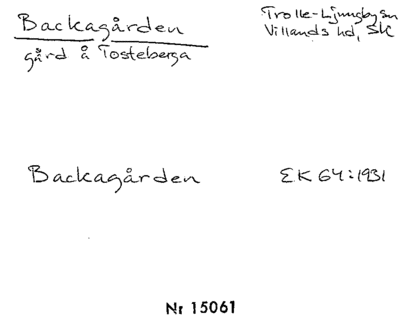 Backagården
gård å Tosteberga
Trolle-Ljungby sn
Villands hd, SK
Backagården
EK 64:1931
Nr 15061